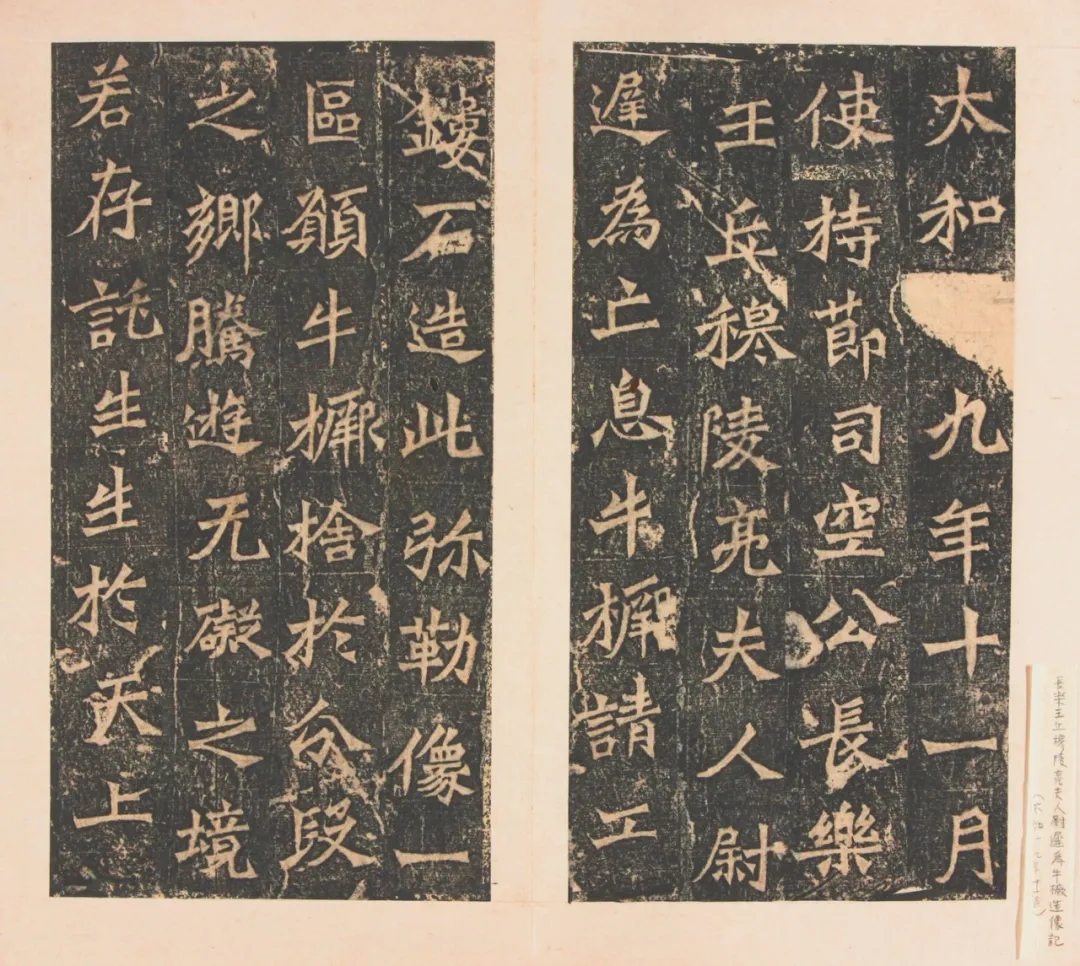 太和九年十一月
使持節司空公長樂
王丘穆陵亮夫人尉
遲為亡息牛橛請工
鏤石造此弥勒像一
區願牛橛捨於分段
之鄉騰遊无礙之境
若存託生生於天上
長樂王丘穆陵亮夫人尉遲為牛橛造像記
（太和十九年十一月）